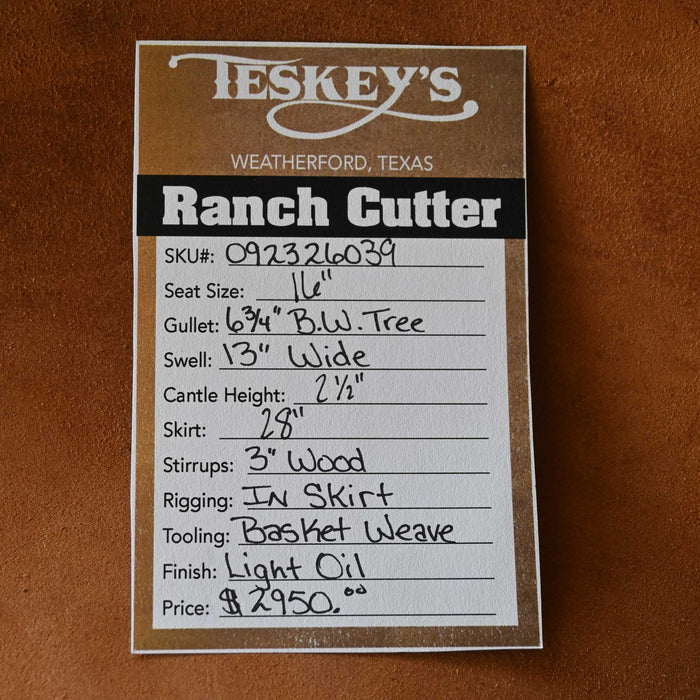 TESKEY'S
WEATHERFORD, TEXAS
Ranch Cutter
SKU#: 092326039
Seat Size: 16"
Gullet: 6 3/4" B.W. Tree
Swell: 13" Wide
Cantle Height: 2 1/2"
Skirt: 28"
Stirrups: 3" Wood
Rigging: In Skirt
Tooling: Basket Weave
Finish: Light Oil
Price: $2950.00